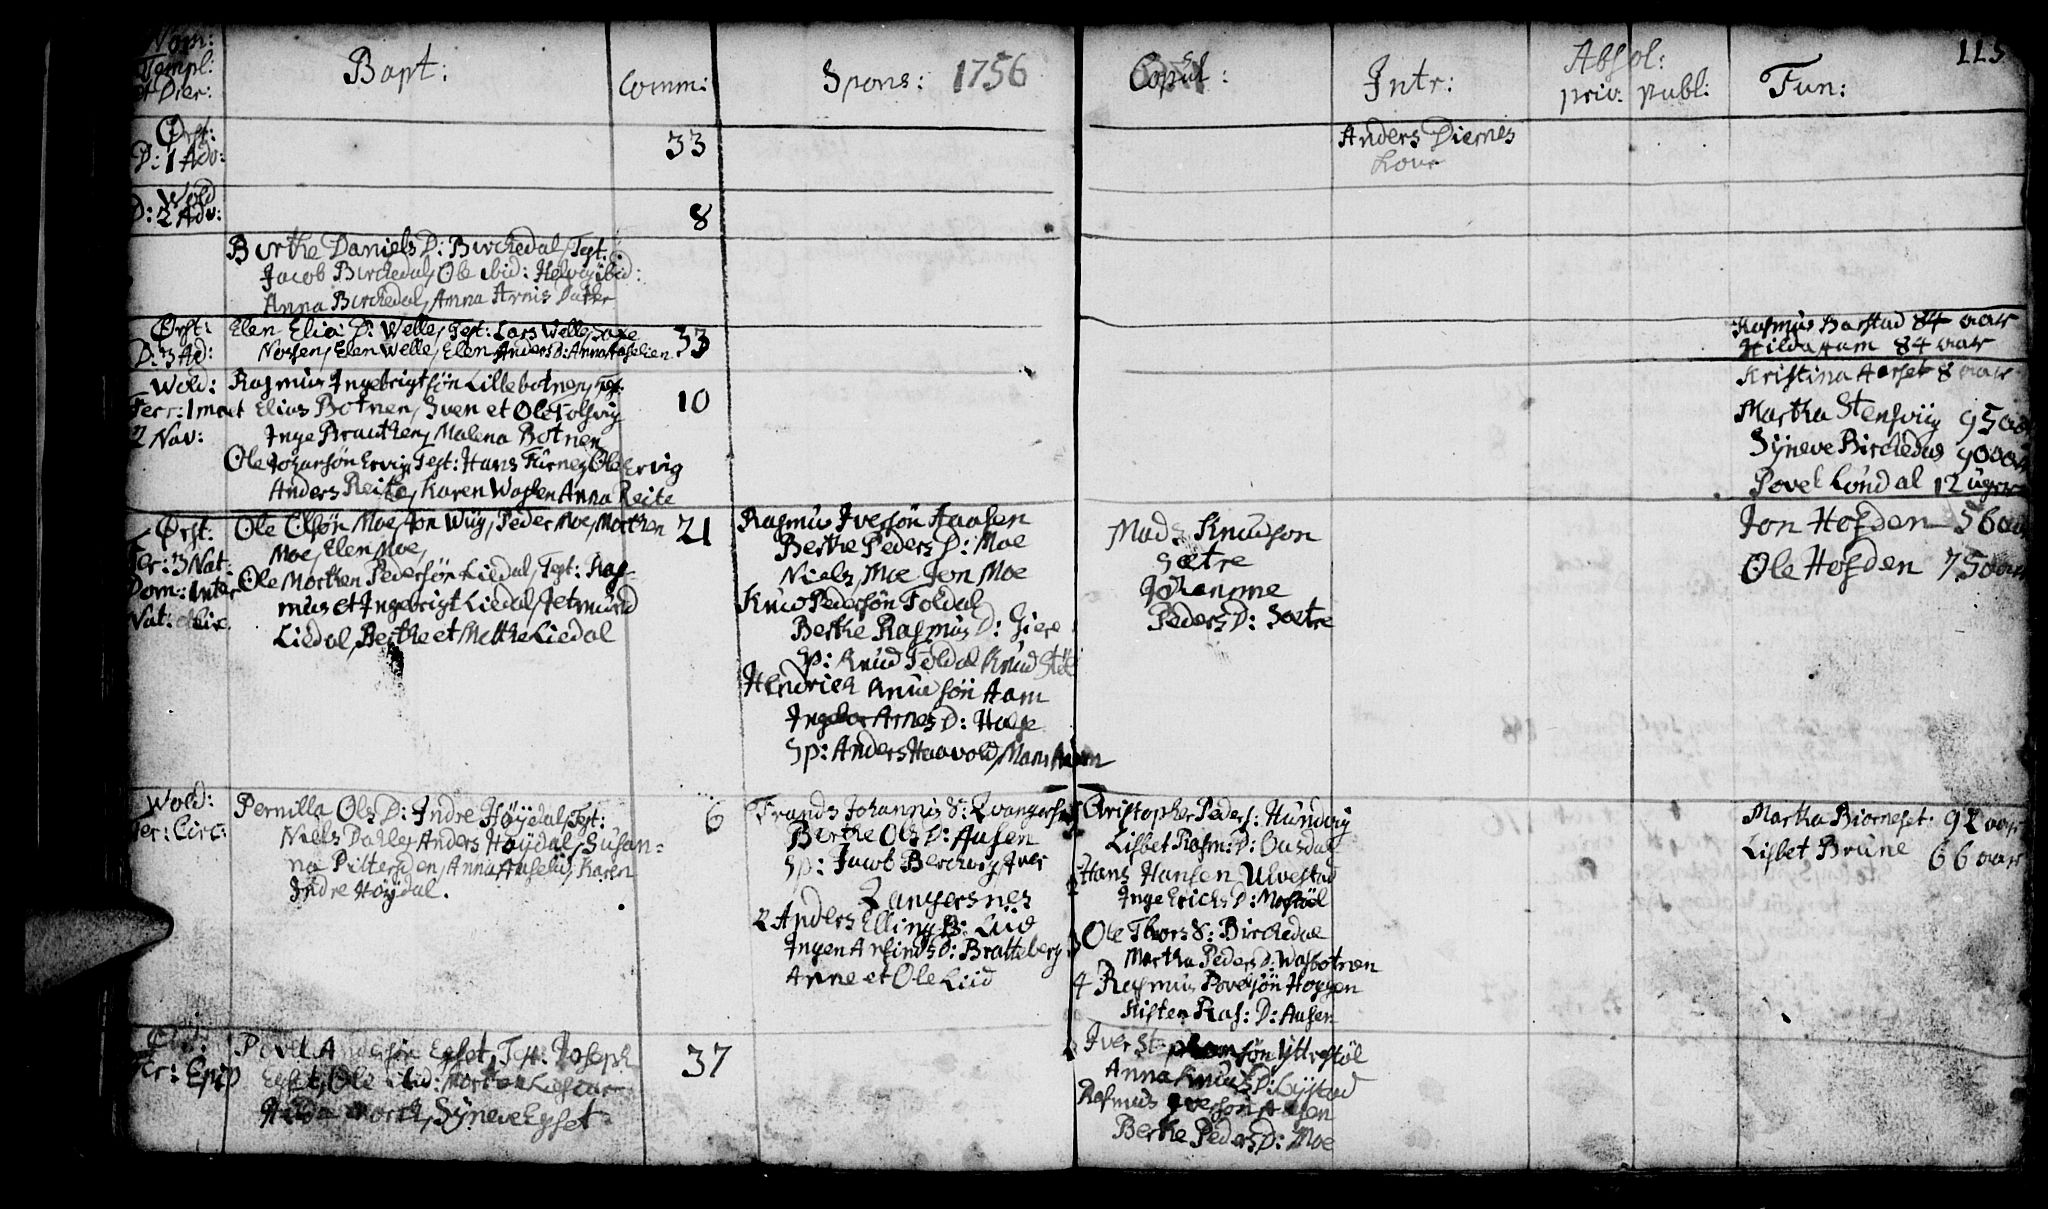 Nom:
Templ:
et Dier:
Bapt:
Comm:
Spons: 1756
Copul:
Intr:
Absol:
priv: publ:
Fun:
115
Ørst:
D: 1 Adv:
33
Anders Diernes
Kone
Wold
D: 2 Adv:
8
Birthe Daniels D: Birchedal, Test:
Jacob Birchedal, Ole ibid: Helvig ibid:
Anna Birchedal, Anna Arnis Datter
Ørst:
D: 3 Ad:
Elen Elia D: Welle, Test: Lars Welle, Saxe
Nossen, Elen Welle, Elen Anders D: Anna
33
Rasmus Barstad 84 aar
Hilda Aam 84 aar
Wold:
Fer: 1 m et
2 Nav:
Rasmus Ingebrigtsøn Lillebotnen, Test:
Elias Botnen, Sven et Ole Folsvig
Inge Brauthen, Malena Botnen
Ole Joharsøn Ervig, Test: Hans Ole Ervig
Anders Reite, Karen Wassen Anna Reite
10
Kristina Aarset 8 aar
Martha Stensviig 95 aar
Syneve Birchedal 90 aar
Povel Londal 12 uger
Ørst:
Fer: 3 Nat:
Dom: Inter
Nat:
Ole Olsøn Moe, Jon Wiig, Peder Moe, Morthen
Moe, Elen Moe,
Ole Morthen Pedersøn Liedal, Test: Ras-
mus et Ingebrigt Liedal, Jetmund
Liedal, Berthe et Methe Liedal
21
Rasmus Iversøn Aasen
Berthe Peders D: Moe
Niels Moe Jon Moe
Knud Pedersøn Foldal
Berthe Rasmus D: Giere
Sp: Knud Foldal Knud
Hendrich Knudsøn Aam
Ingebor Arnes D: Halse
Sp: Anders Haavold, Mans Aam
Mads Knudson
Sætre
Johanne
Peders D: Soetre
Jon Hofden 56 aar
Ole Hofden 75 aar
Wold:
Fer: Circ:
Pernilla Ols D: Indre Høydal, Test:
Niels Dahle, Anders Høydal, Susan=
na Pilterden, Anna Auselii, Karen
Indre Høydal.
6
Frands Johannis S:
Berthe Ols D: Aasen
Sp: Jacob Berchvig, Iver
Zangersnes
2 Anders Elling S: Liid
Ingen Arfinds D: Bratteberg
Anne et Ole Liid
Christopher Peders: Hundvig
Lisbet Rasm: D: Ousdal
2 Hans Hansen Ulvestad
Inge Erichs D: Mostøl
3 Ole Thors S: Birchedal
Martha Peders D: Wasbotnen
4 Rasmus Povelsøn Hoggen
Kisten Ras: D: Aasen
Martha Biørneset 92 aar
Lisbet Brune 66 aar
Fer: Epip
Povel Andersøn Egset, Test: Joseph
Egset, Ole ibid: Morten
Hilda Morch, Syneve Egset
37
Iver Ytrestøl
Anna Knuds D: Lystad
Rasmus Iversøn Aasen
Berthe Peders D: Moe